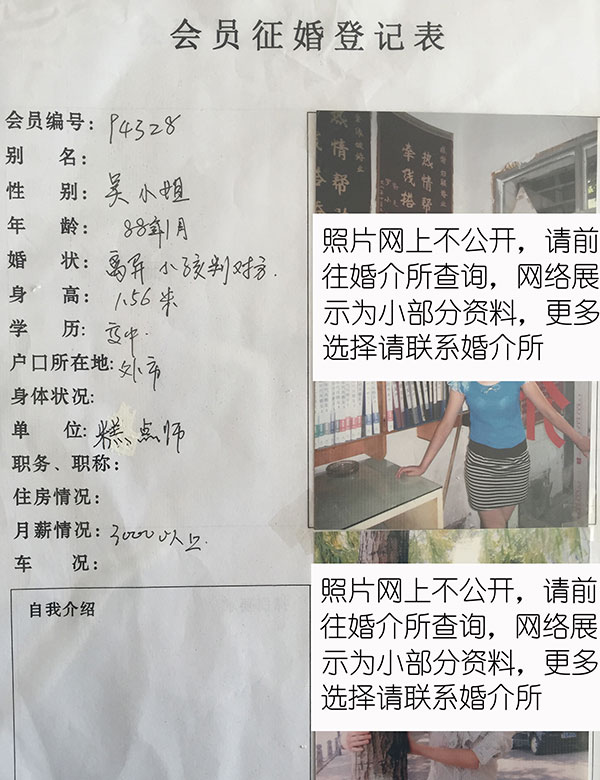 会员征婚登记表
会员编号：94328
别 名：
性 别：吴小姐
年 龄：88年1月
婚 状：离异 小孩判对方.
身 高：1.56米
学 历：高中.
户口所在地：外市
身体状况：
单 位：糕点师
职务、职称：
住房情况：
月薪情况：3000以上
车 况：
自我介绍
热情帮
牵线搭
照片网上不公开，请前
往婚介所查询，网络展
示为小部分资料，更多
选择请联系婚介所
照片网上不公开，请前
往婚介所查询，网络展
示为小部分资料，更多
选择请联系婚介所